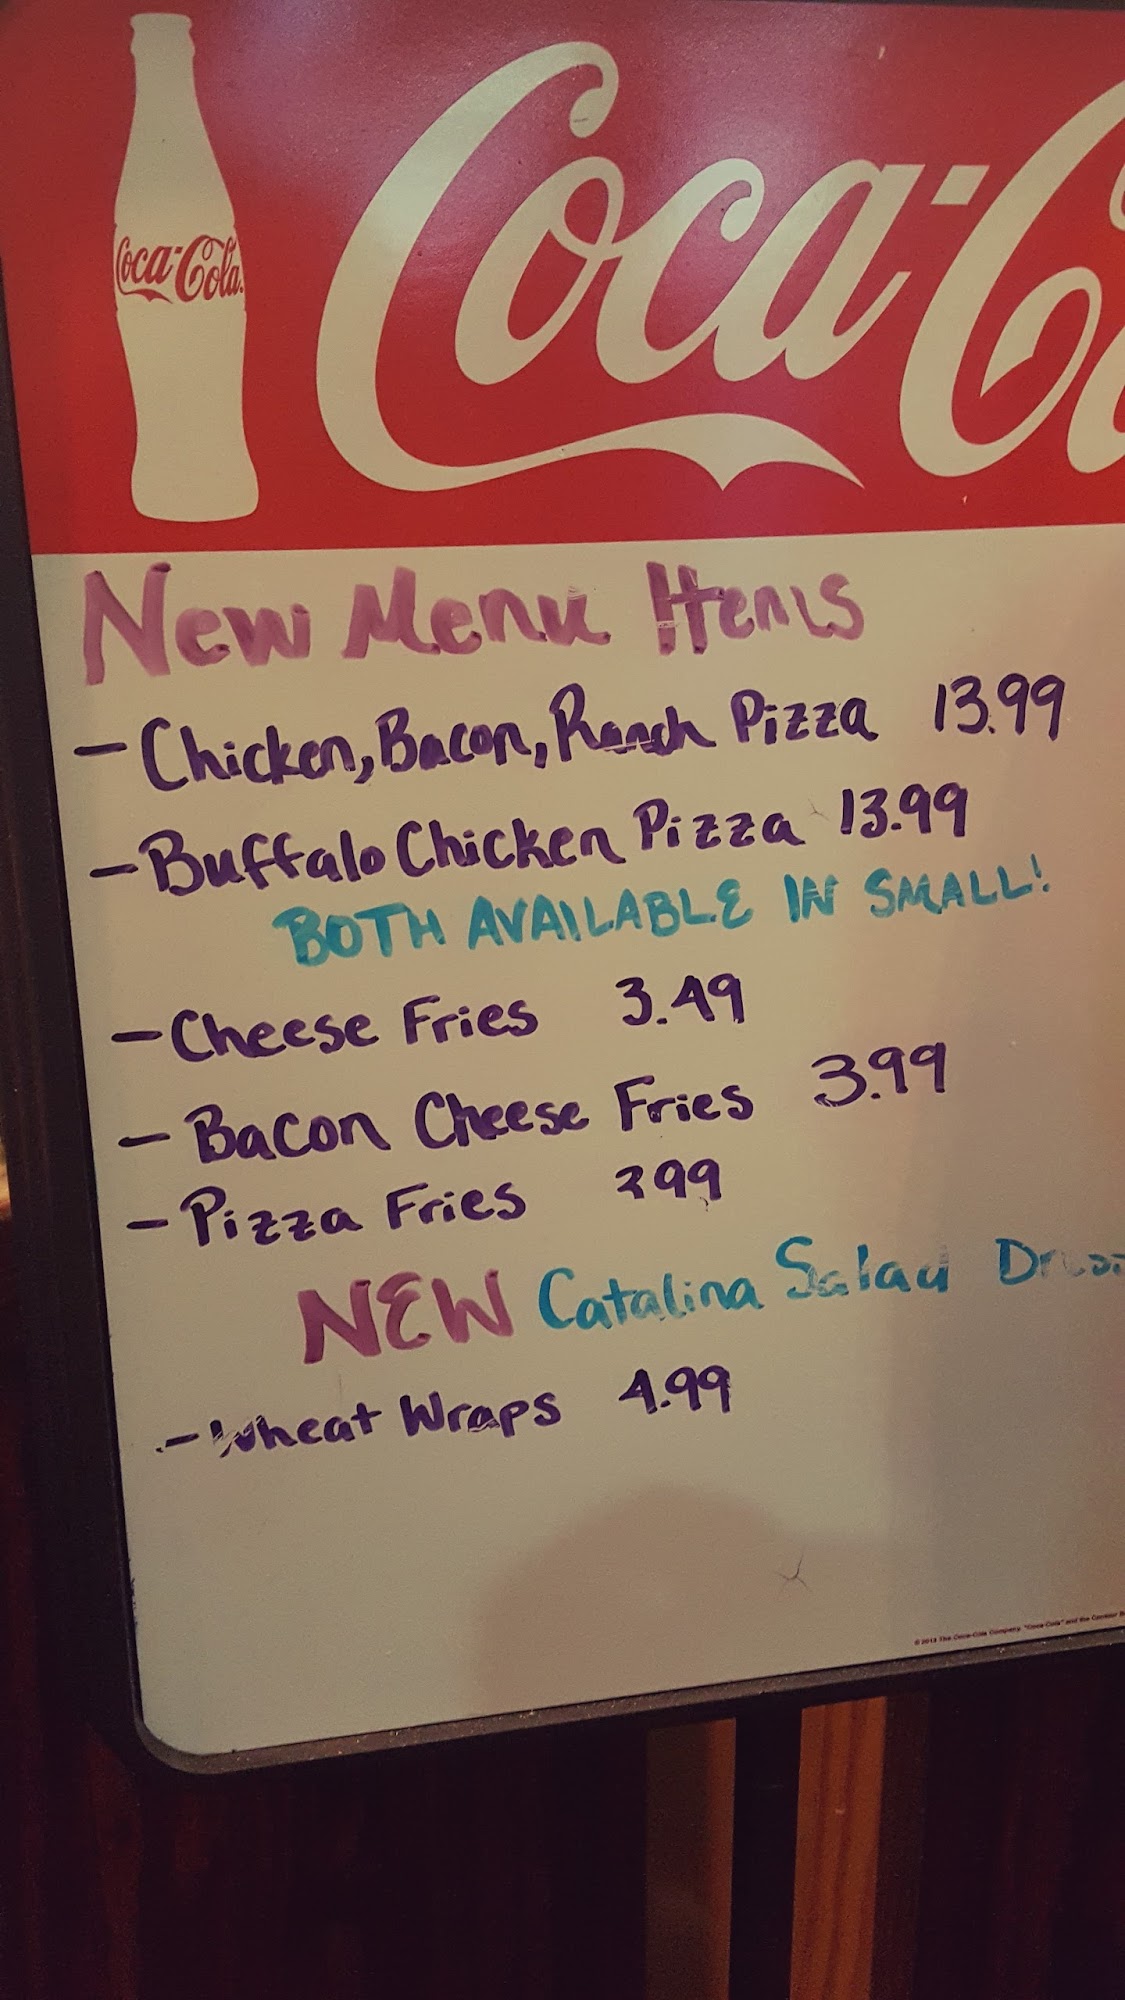 Coca-Cola
Coca-C
New Menu Items
- Chicken, Bacon, Ranch Pizza 13.99
- Buffalo Chicken Pizza 13.99
BOTH AVAILABLE IN SMALL!
- Cheese Fries 3.49
- Bacon Cheese Fries 3.99
- Pizza Fries 399
NEW Catalina Salad
- Wheat Wraps 4.99
© 2013 The Coca-Cola Company. "Coca-Cola" and the Contour